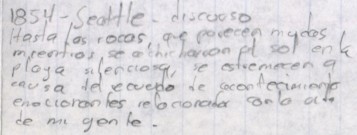 1854 - Seattle - discurso
Hasta las rocas, que parecen mudas
mientras se achicharran al sol en la
playa silenciosa, se estremecen a
causa del recuerdo de acontecimientos
emocionantes relacionados con la
de mi gente.